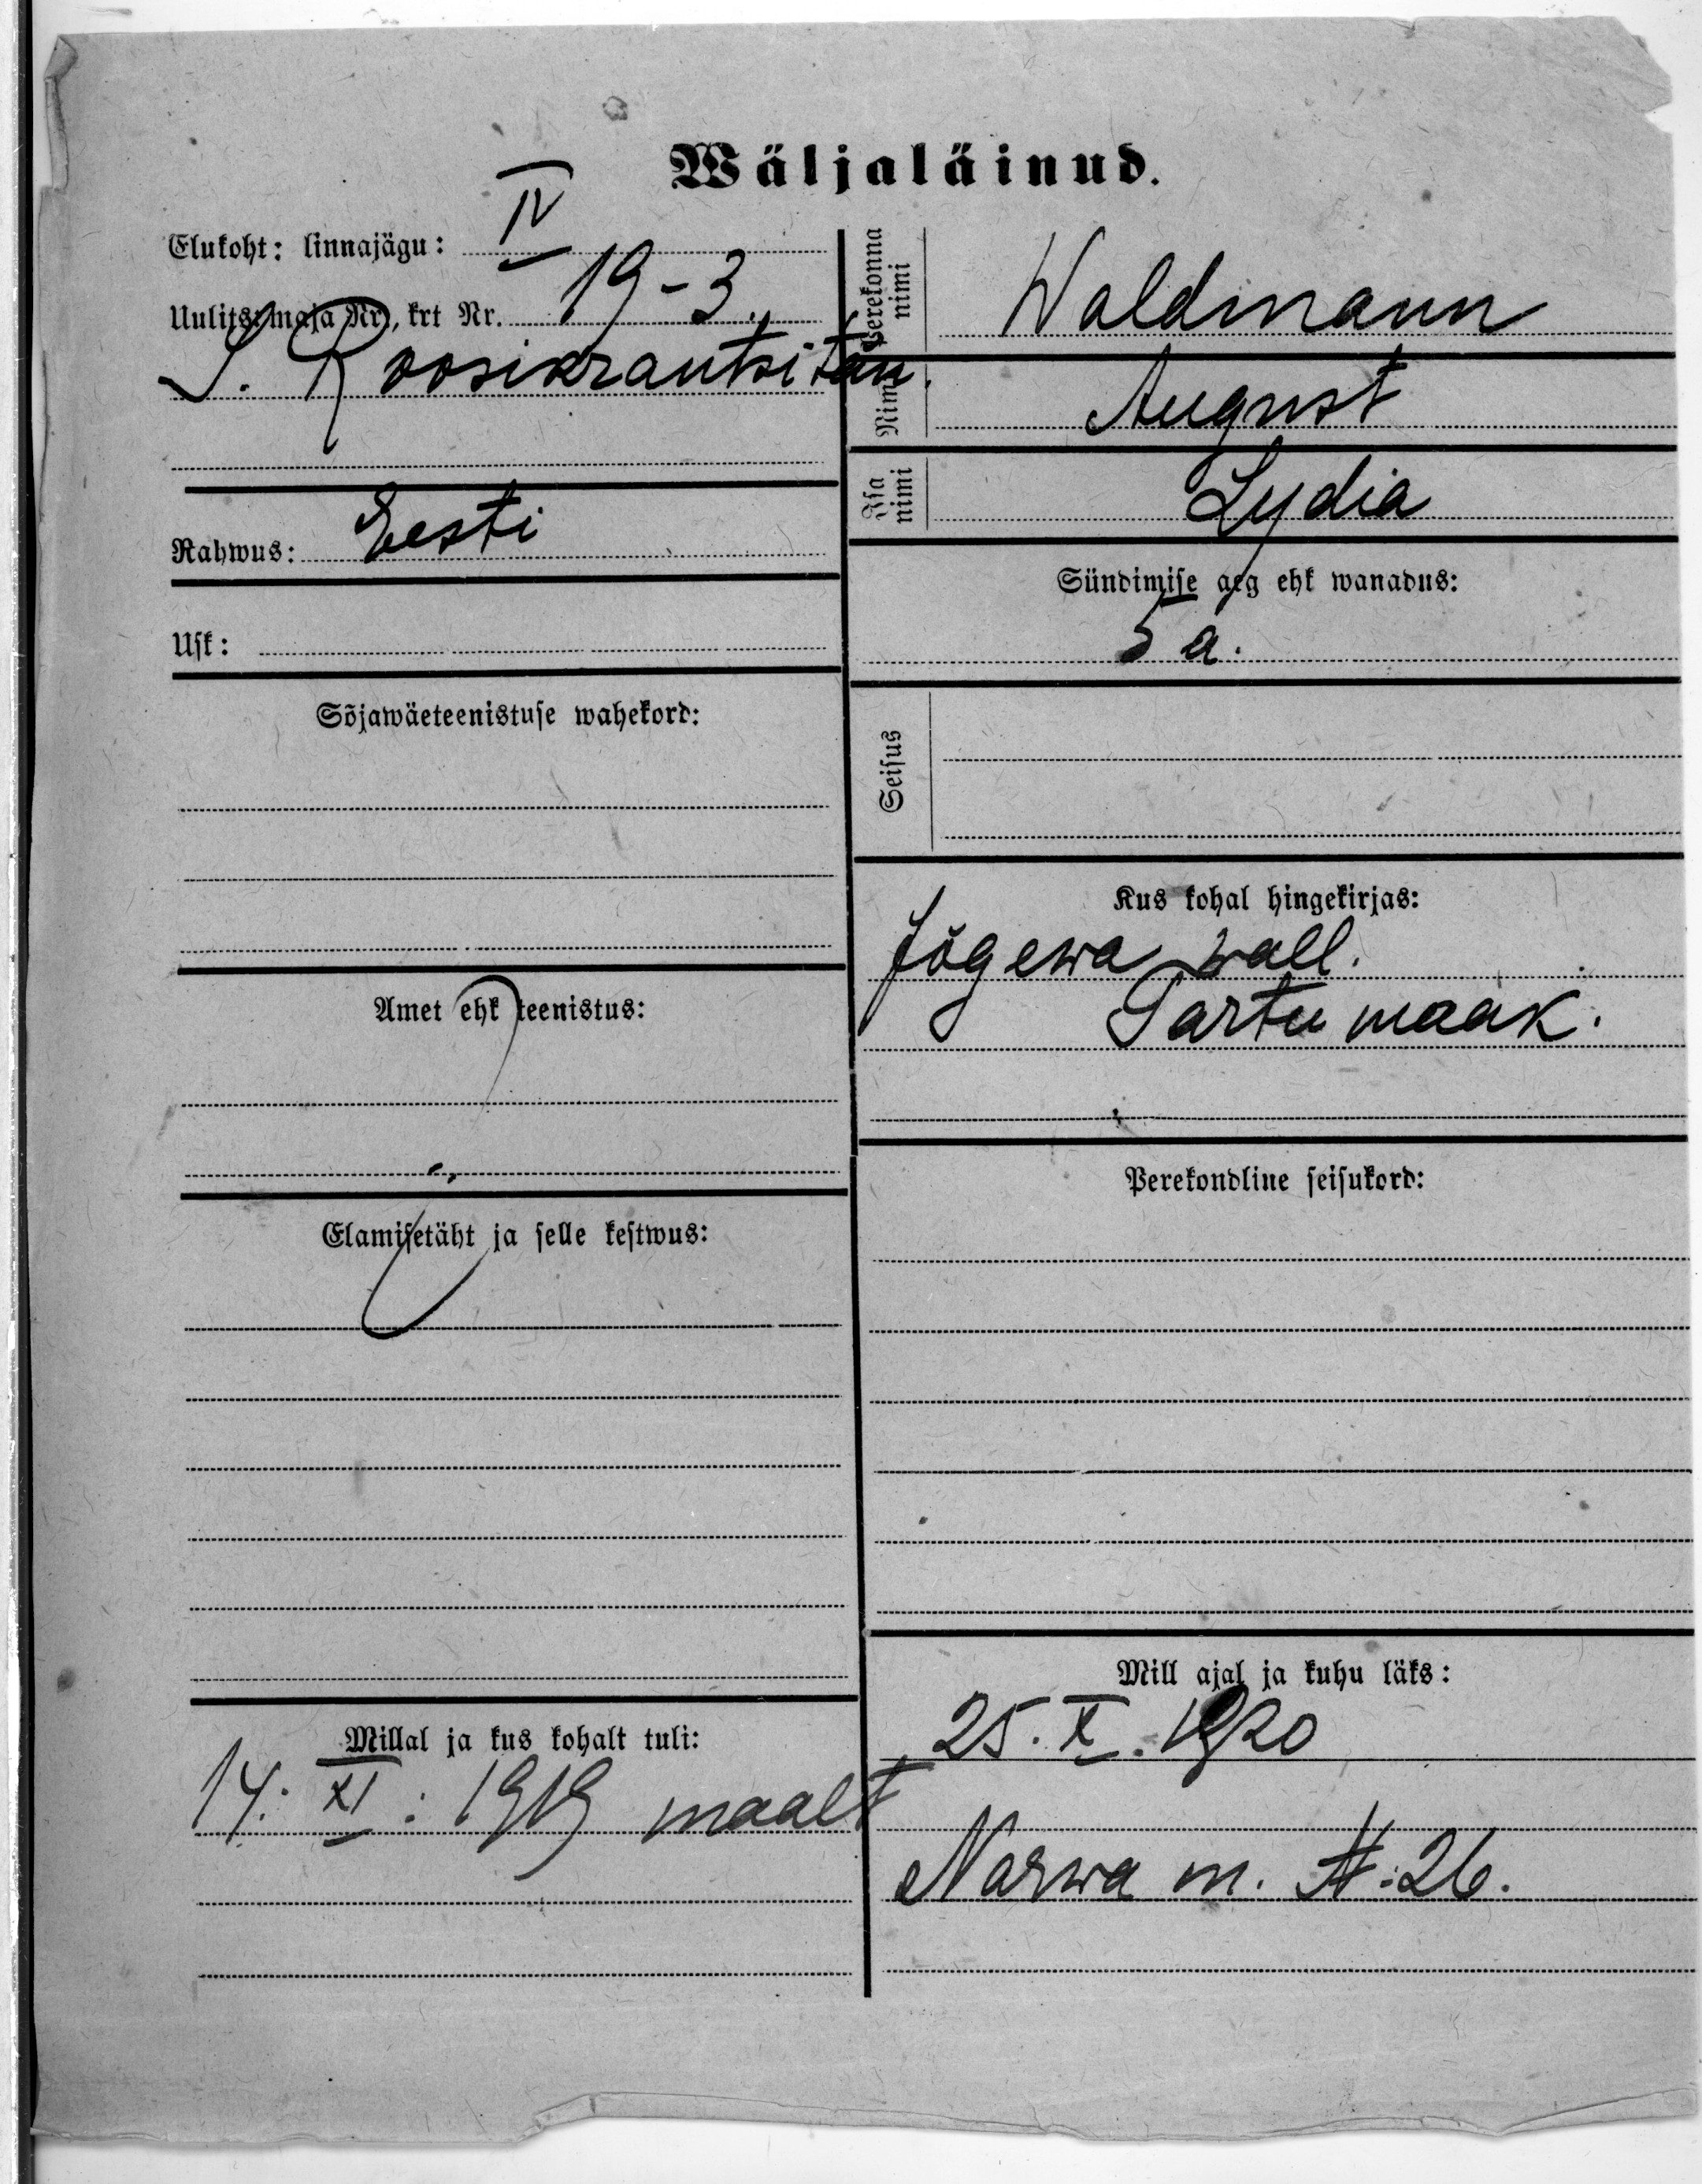 Wäljaläinud.
Elukoht: linnajägu: IV
Uulits, maja Nr., krt Nr. 19-3.
S. Roosikrantsi tän.
Rahwus: Eesti
Usk:
Sõjawäeteenistuse wahekord:
Amet ehk teenistus:
Elamisetäht ja selle kestwus:
Millal ja kus kohalt tuli:
14. XI. 1919 maalt
Perekonna nimi Waldmann
Nimi August
Isa nimi Lydia
Sündimise aeg ehk wanadus:
5 a.
Seisus
Kus kohal hingekirjas:
Jõgewa wall.
Tartu maak.
Perekondline seisukord:
Mill ajal ja kuhu läks:
25. X. 1920
Narwa m. N: 26.